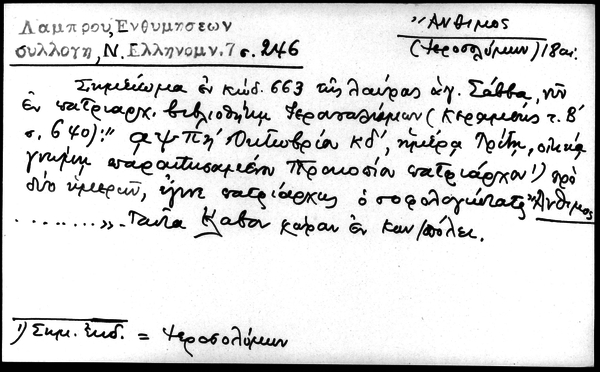 Λάμπρου, Ἐνθυμήσεων
συλλογή, Ν. Ἑλληνομν. 7 σ. 246
Ἄνθιμος
(Ἱεροσολύμων) 18 αἰ.
Σημείωμα ἐν κώδ. 663 τῆς λαύρας ἁγ. Σάββα, νῦν
ἐν πατριαρχ. βιβλιοθήκῃ Ἱεροσολύμων (Κεραμεύς τ. Β΄
σ. 640): "αψπη΄ Ὀκτωβρίου κδ΄, ἡμέρα Τρίτῃ, οἰκείᾳ
γνώμῃ παραιτησαμένου Προκοπίου πατριάρχου 1) πρὸ
δύο ἡμερῶν, ἔγινε πατριάρχης ὁ σοφολογιώτατος Ἄνθιμος
.........". Ταῦτα ἔλαβον χώραν ἐν Κων/πόλει.
1) Σημ. ἐκδ. = Ἱεροσολύμων